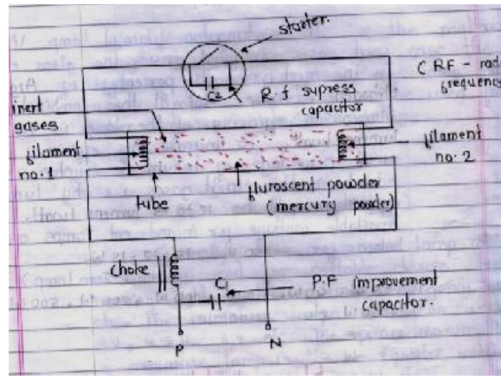 starter.
C2
R.f supress
capacitor
( RF - rad
frequency
inert
gases
filament
no.1
filament
no.2
tube
fluroscent powder
(mercury powder)
choke
C1
P.F improvement
capacitor.
P
N